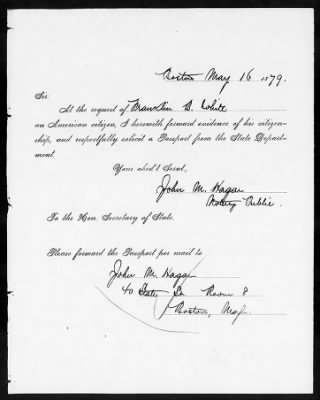 Boston May 16 1879.
Sir
At the request of Franklin B. White
an American citizen, I herewith forward evidence of his citizen-
ship, and respectfully solicit a Passport from the State Depart-
ment.
Your obed't Servt,
John M. Hagan
Notary Public.
To the Hon Secretary of State.
Please forward the Passport per mail to
John M. Hagan
40 State St Room 8
Boston, Mass